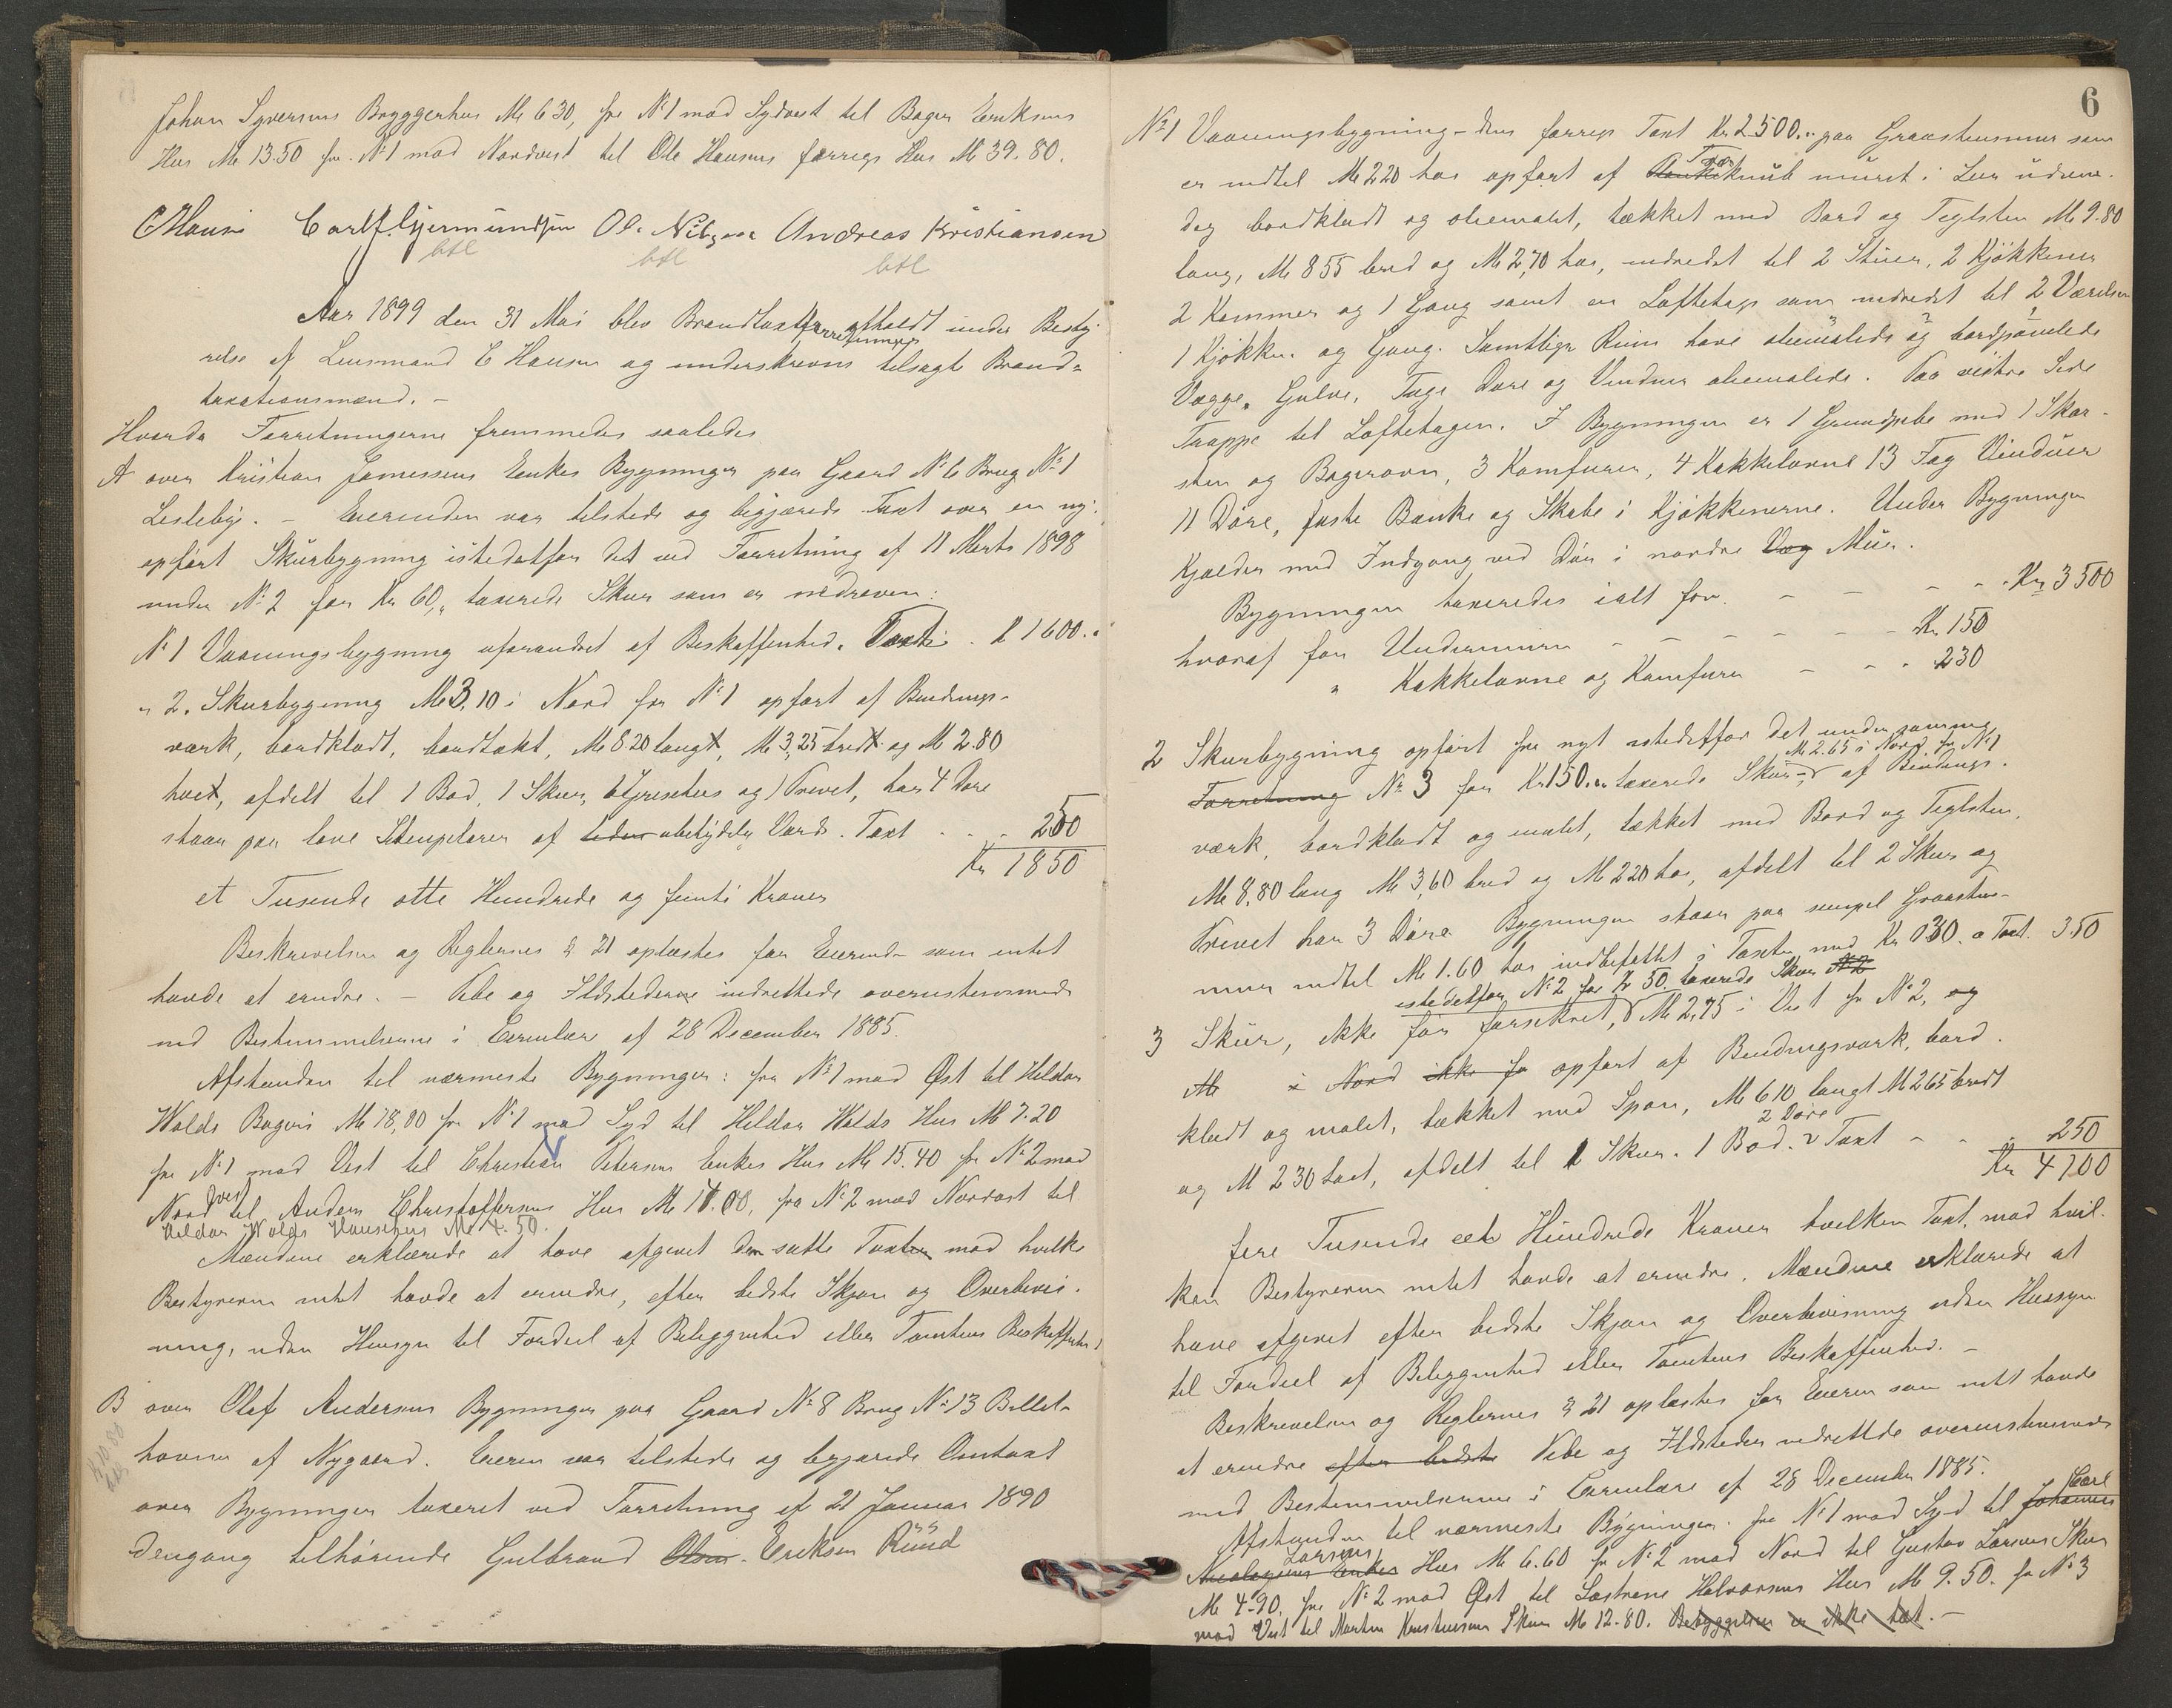 Johan Syversens Bryggerhus M 6.30, fra N.1 mod Sydvest til Bager Eriksens
Hus M 13.50 fra N.1 mod Nordvest til Ole Hansens forrige Hus M 39.80.
CHansen Carl F. Gjermundsen Ole Nibyaa Andreas Kristiansen
btl btl btl
Aar 1899 den 31 Mai blev Brandtaxtforretninger afholdt under Besty-
relse af Lensmand C Hansen og underskrevne tilsagte Brand-
taxationsmænd. –
Hvorda Forretningerne fremmedes saaledes
A over Kristian Jonassens Enkes Bygninger paa Gaard No 6 Brug No 1
Lesteby. – Eierinden var tilstede og begjærede Taxt over en ny-
opført Skurbygning istedetfor det ved Forretning af 11 Marts 1898
under No 2 for Kr 60,„ taxerede Skur som er nedreven:
No 1 Vaaningsbygning uforandret af Beskaffenhed. Taxt . . 1600.„
„ 2. Skurbygning M 3,10 i Nord fra No 1 opført af Bindings-
værk, bordklædt, bordtækt, M 8.20 langt, M 3,25 bredt og M 2.80
høit, afdelt til 1 Bod, 1 Skur, 1 Grisehus og 1 Privet, har 4 Døre
staar paa lave Stenpelarer af ubetydelig Værdi. Taxt . . . 250
Kr 1850
et Tusende otte Hundrede og femti Kroner
Beskrivelsen og Reglernes § 21 oplæstes for Eierinden som intet
havde at erindre. – Pibe og Ildstederne indrettede overensstemmende
med Bestemmelserne i Circulære af 28 December 1885.
Afstanden til nærmeste Bygninger: fra No 1 mod Øst til Heldor
Wolds Bageri M 18,80 fra No 1 mod Syd til Heldor Wolds Hus M 7.20
fra No 1 mod Vest til Christian Petersens Enkes Hus M 15.40 fra No 2 mod
Nordvest til Anders Christoffersens Hus M 17.00, fra No 2 mod Nordost til
Heldor Wolds Hønsehus M 4.50.
Mændene erklærede at have afgivet den satte Taxten mod hvilke
Bestyreren intet havde at erindre, efter bedste Skjøn og Overbevis-
ning, uden Hensyn til Fordeel af Beliggenhed eller Tomtens Beskaffenhed
B over Olaf Andersens Bygninger paa Gaard No 8 Brug No 13 Billet-
hovne af Nygaard. Eieren var tilstede og begjærede Omtaxt
over Bygninger taxeret ved Forretning af 21 Januar 1890
dengang tilhørende Gulbrand Olsen. Eriksen Rüüd
6
No 1 Vaaningsbygning – dens forrige Taxt Kr 2500.„ paa Graastensmur som
er indtil M 2.20 høi opført af Træknub muret i Leer udven-
dig bordklædt og oliemalet, tækket med Bord og Teglsten M 9.80
lang, M 8.55 bred og M 2,70 høi, indredet til 2 Stuer, 2 Kjøkkener
2 Kammer og 1 Gang samt en Loftetage som indredet til 2 Værelser
1 Kjøkken og Gang. Samtlige Rum have oliemalede og bordpanelede
Vægge, Gulve, Tage Døre og Vinduer oliemalede. Paa vestre Side
Trappe til Loftetagen. I Bygningen er 1 Grundpibe med 1 Skor-
sten og Bagerovn, 3 Komfurer, 4 Kakkelovne 13 Fag Vinduer
11 Døre, faste Bænke og Skabe i Kjøkkenerne. Under Bygningen
Kjælder med Indgang ved Dør i nordre Væg Mur.
Bygningen taxeredes ialt for – – – – Kr 3500
hvoraf for Undermuren – – – – – Kr. 150
„ Kakkelovne og Komfurer – – – 230
2 Skurbygning opført fra nyt istedetfor det under samme
M 2.65 i Nord fra No 1
Forretning No 3 for Kr 150.„ taxerede Skur – af Bindings-
værk, bordklædt og malet, tækket med Bord og Teglsten,
M 8,80 lang M 3,60 bred og M 2.20 høi, afdelt til 2 Skur og
Privet har 3 Døre Bygningen staar paa simpel Graastens-
mur indtil M 1.60 høi indbefattet i Taxten med Kr 030. Taxt. 350
istedetfor No 2 for Kr 50. taxerede Skur No 2
3 Skur, ikke før forsikret, M 2,75 i Vest fra No 2, og
M i Nord ikke fra opført af Bindingsværk, bord-
klædt og malet, tækket med Spon, M 6.10 langt M 2.65 bredt
2 Døre
og M 2.30 høit, afdelt til 1 Skur. 1 Bod. Taxt – – 250
Kr 4100
fire Tusende eet Hundrede Kroner hvilken Taxt, mod hvil-
ken Bestyreren intet havde at erindre. Mændene erklærede at
have afgivet efter bedste Skjøn og Overbevisning uden Hensyn
til Fordeel af Beliggenhed eller Tomtens Beskaffenhed. –
Beskrivelsen og Reglernes § 21 oplæstes for Eieren som intet havde
at erindre efter bedste Pibe og Ildsteder indrettede overensstemmende
med Bestemmelserne i Circulære af 28 December 1885.
Carl
Afstanden til nærmeste Bygninger. fra No 1 mod Syd til Johannes
Larsens
Nicolaysens Enkes Hus M 6.60 fra No 2 mod Nord til Gustav Larsens Skur
M 4.90. fra No 2 mod Øst til Søstrene Halvorsens Hus M 9.50. fra No 3
mod Vest til Morten Kristensens Skur M 12.80. Bebyggelsen er ikke tæt. –